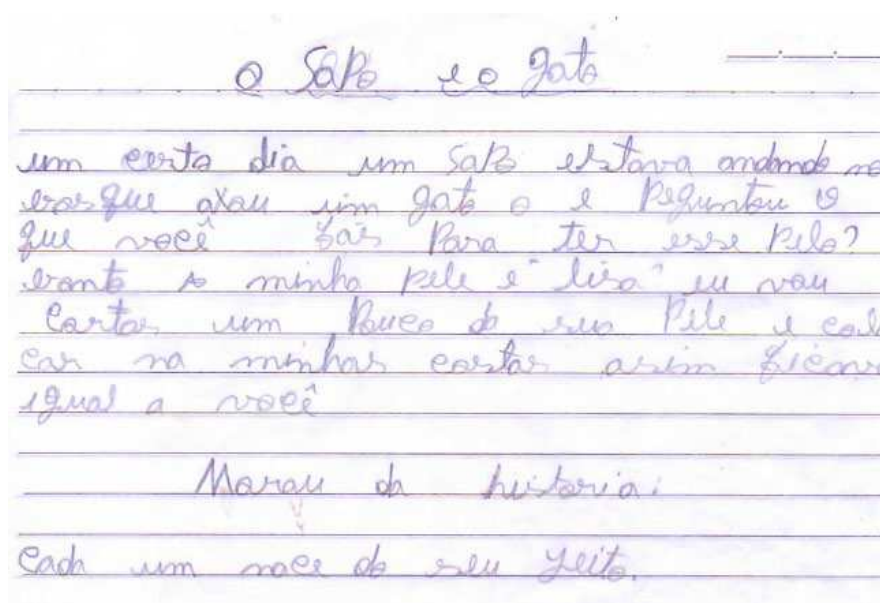 O Sapo e o gato
um certo dia um sapo estava andando no
bosque axou um gato o e peguntou o
que você fais para ter esse pelo?
a minha pele e "lisa" eu vou
Cortar um pouco do seu Pele e colo
car na minhas costas asim ficarei
igual a você
Marau da historia:
Cada um nace do seu jeito.